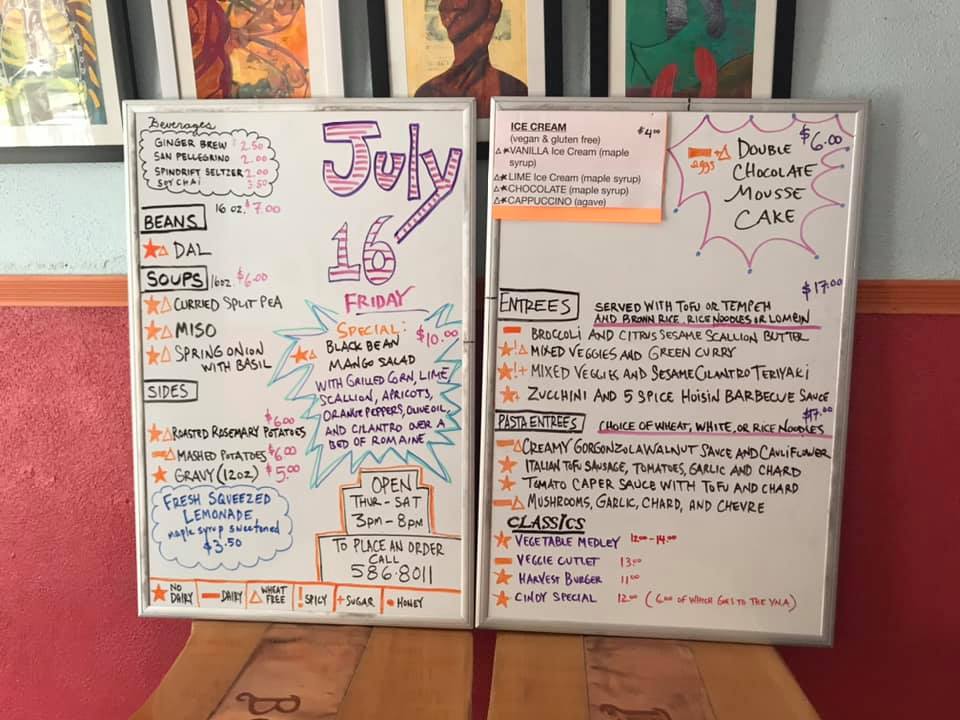 Beverages
GINGER BREW 2.50
SAN PELLEGRINO 2.00
SPINDRIFT SELTZER 2.00
SOY CHAI 3.50
BEANS 16 oz. $7.00
DAL
SOUPS 16oz. $6.00
CURRIED SPLIT PEA
MISO
SPRING ONION
WITH BASIL
SIDES
$6.00
ROASTED ROSEMARY POTATOES
MASHED POTATOES $6.00
GRAVY (12oz) $5.00
FRESH SQUEEZED
LEMONADE
maple syrup sweetened
$3.50
July
16
FRIDAY
SPECIAL: $10.00
BLACK BEAN
MANGO SALAD
WITH GRILLED CORN, LIME
SCALLION, APRICOTS,
ORANGE PEPPERS, OLIVE OIL,
AND CILANTRO OVER A
BED OF ROMAINE
OPEN
THUR - SAT
3PM - 8PM
TO PLACE AN ORDER
CALL
586-8011
NO DAIRY DAIRY WHEAT FREE ! SPICY + SUGAR HONEY
ICE CREAM $4.00
(vegan & gluten free)
VANILLA Ice Cream (maple
syrup)
LIME Ice Cream (maple syrup)
CHOCOLATE (maple syrup)
CAPPUCCINO (agave)
$6.00
eggs + DOUBLE
CHOCOLATE
MOUSSE
CAKE
$17.00
ENTREES SERVED WITH TOFU OR TEMPEH
AND BROWN RICE, RICE NOODLES OR LOMEIN
BROCCOLI AND CITRUS SESAME SCALLION BUTTER
! MIXED VEGGIES AND GREEN CURRY
!+ MIXED VEGGIES AND SESAME CILANTRO TERIYAKI
+ ZUCCHINI AND 5 SPICE HOISIN BARBECUE SAUCE
$17.00
PASTA ENTREES CHOICE OF WHEAT, WHITE, OR RICE NOODLES
CREAMY GORGONZOLA WALNUT SAUCE AND CAULIFLOWER
ITALIAN TOFU SAUSAGE, TOMATOES, GARLIC AND CHARD
TOMATO CAPER SAUCE WITH TOFU AND CHARD
MUSHROOMS, GARLIC, CHARD, AND CHEVRE
CLASSICS
VEGETABLE MEDLEY 12.00-14.00
VEGGIE CUTLET 13.00
HARVEST BURGER 11.00
CINDY SPECIAL 12.00 (6.00 OF WHICH GOES TO THE VNA)